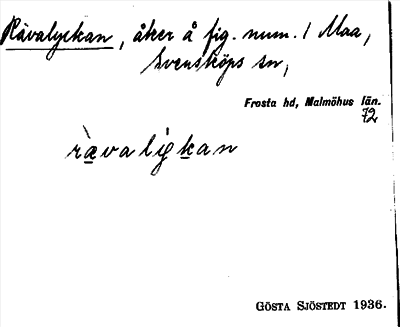 Rävalyckan, åker å fig. num. 1 Maa,
Svensköps sn,
Frosta hd, Malmöhus län.
72
rävaligkan
GÖSTA SJÖSTEDT 1936.